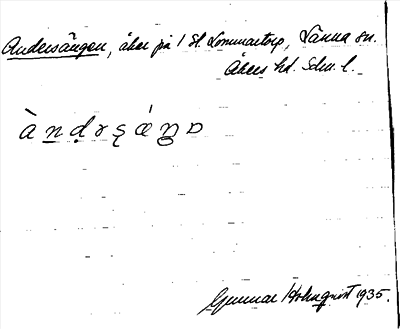 Andersängen, åker på 1 St. Lommartorp, Länna sn.
Åkers hd. Södm. l.
àn̲ḍrşǽŋɒ
Gunnar Holmqvist 1935.